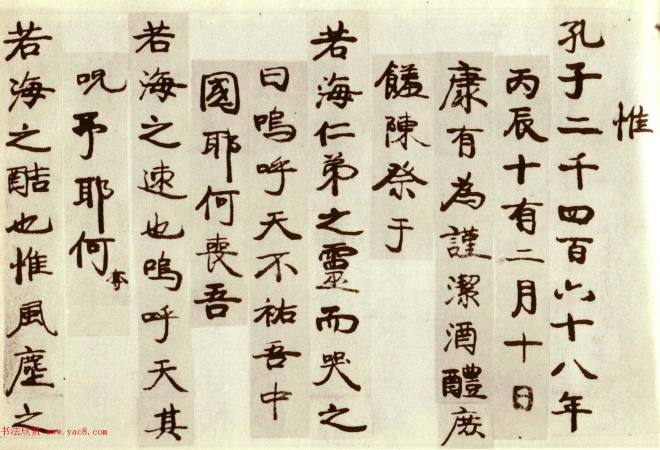 惟
孔子二千四百六十八年
丙辰十有二月十日
康有為謹潔酒醴庶
饈陳祭于
若海仁弟之靈而哭之
曰嗚呼天不祐吾中
國耶何喪吾
若海之速也嗚呼天其
呪予耶何奪
若海之酷也惟風塵之
书法欣赏 www.yac8.com